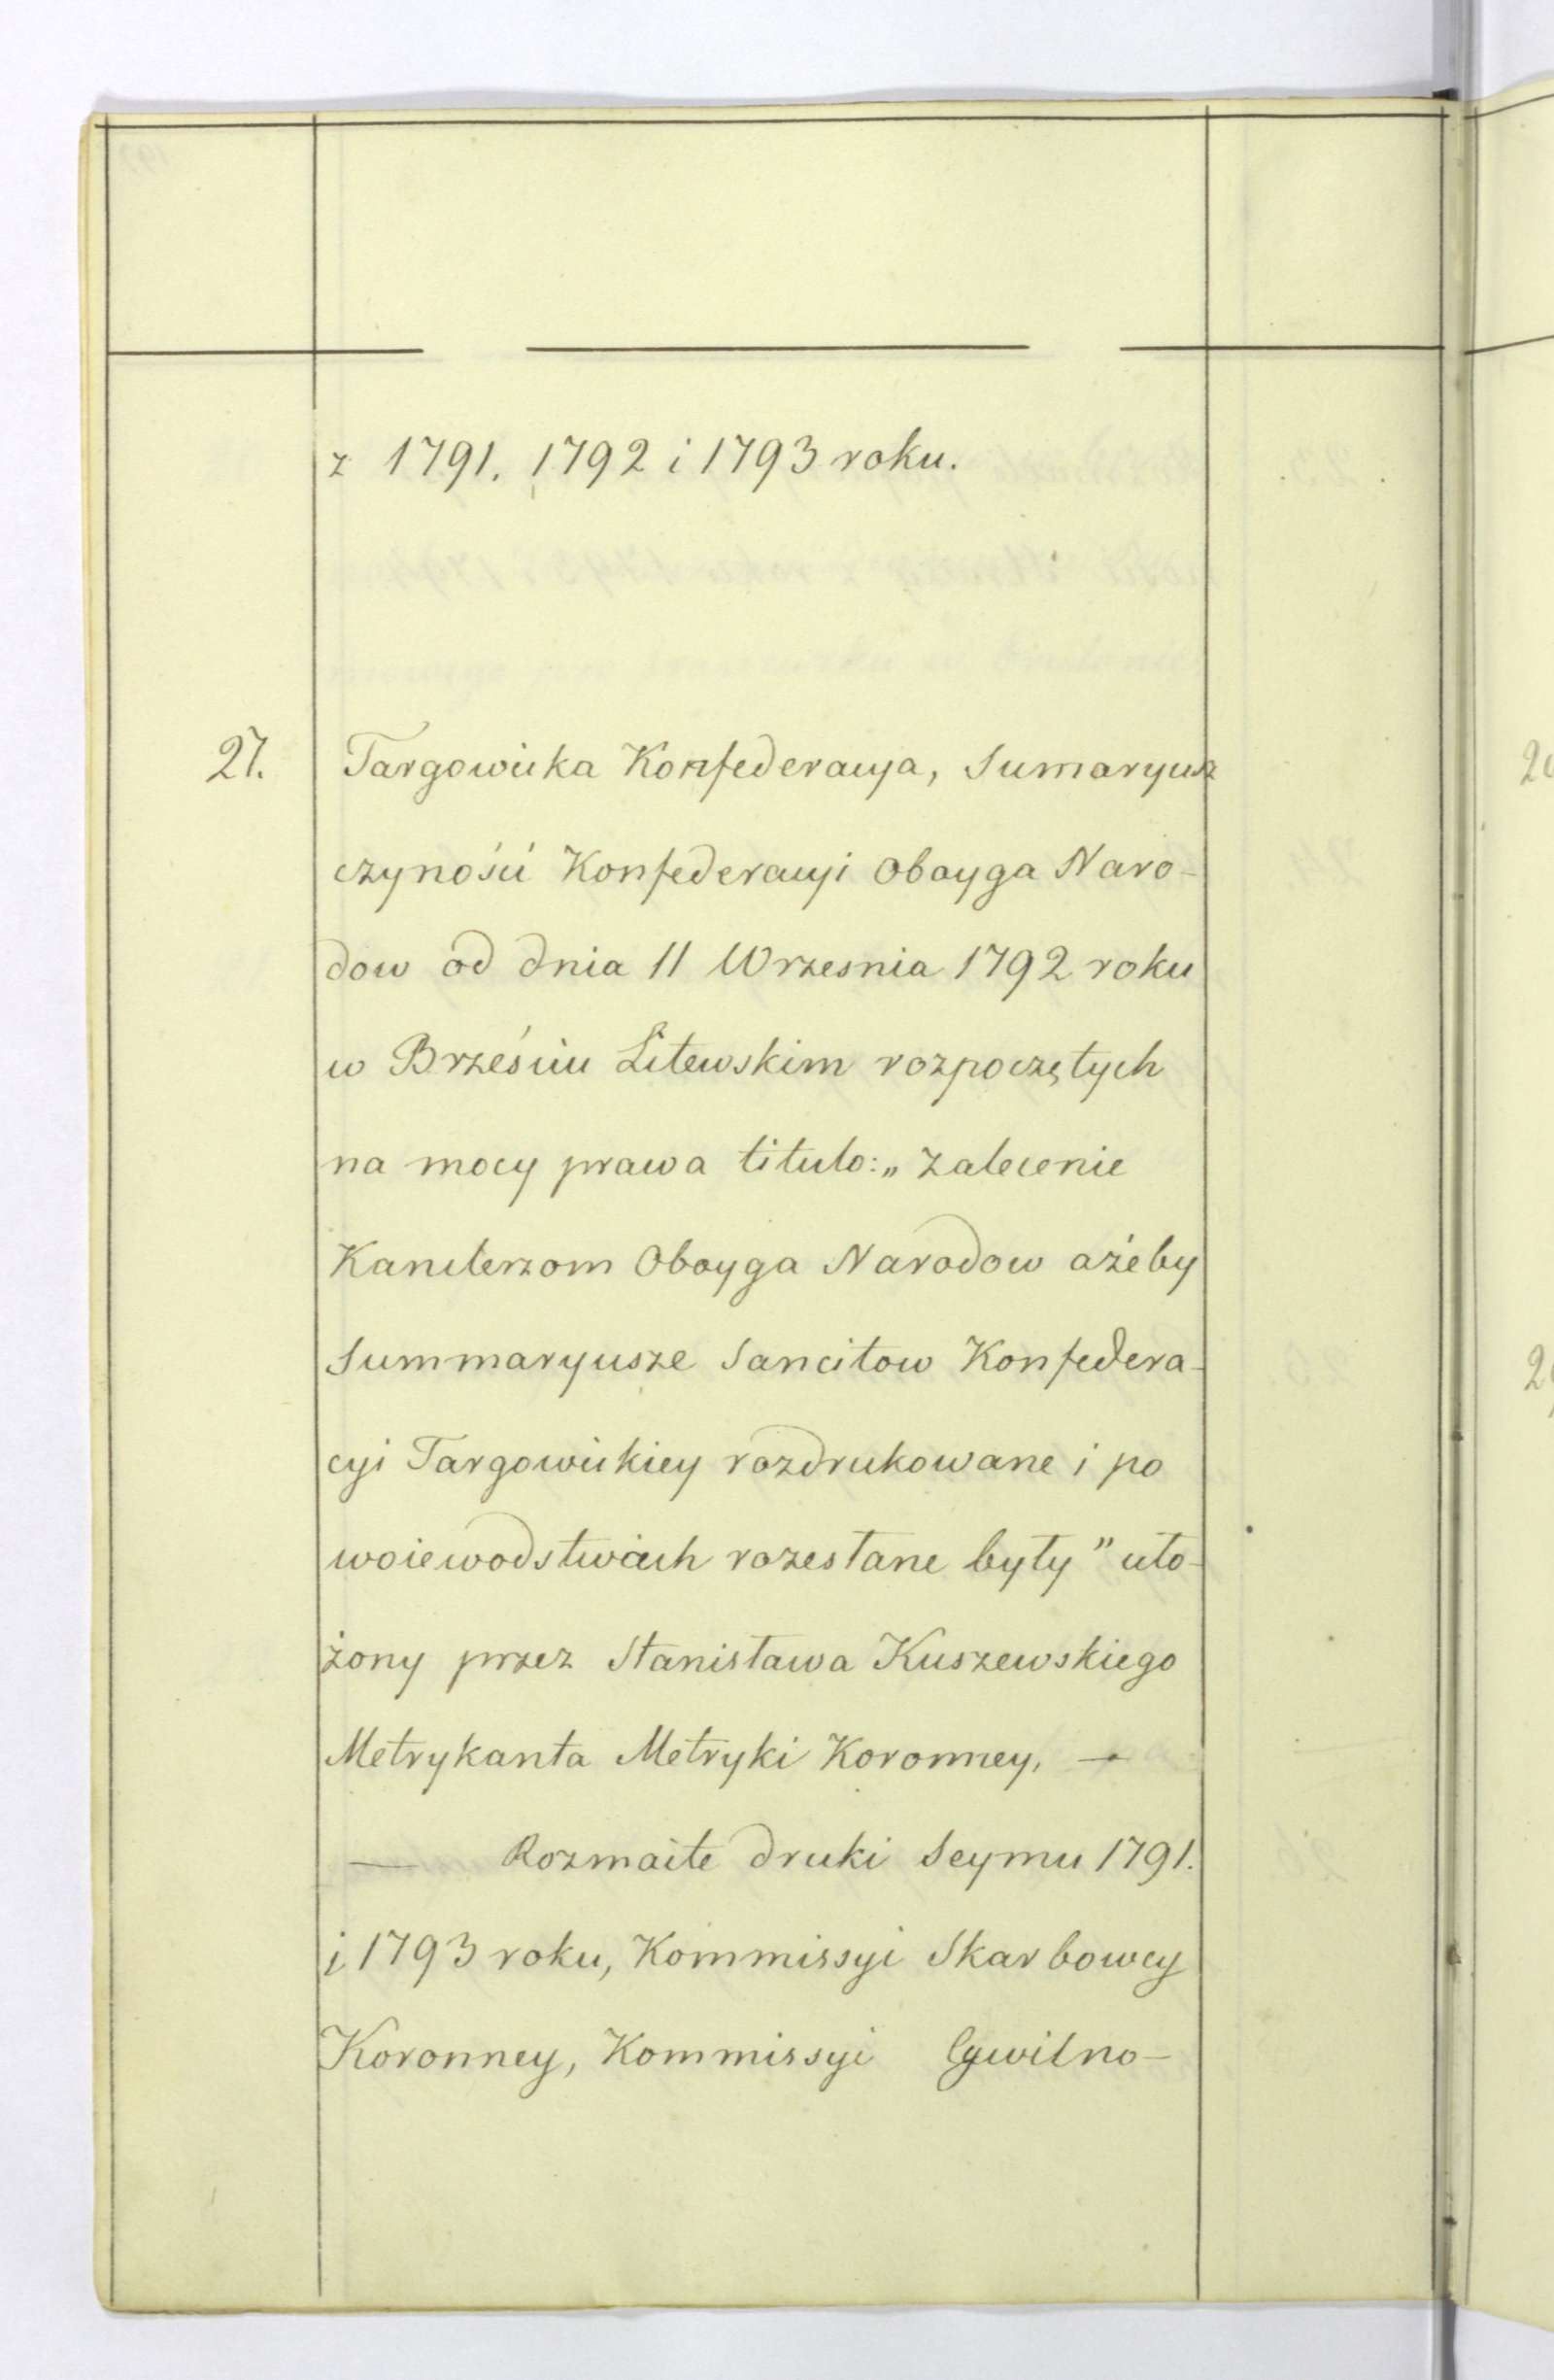 z 1791. 1792 i 1793 roku.
27. Targowicka Konfederacya, Sumaryusz
czyności Konfederacyi Oboyga Naro-
dow od dnia 11 Wrzesnia 1792 roku
w Brześciu Litewskim rozpoczętych
na mocy prawa titulo: „Zalecenie
Kanclerzom Oboyga Narodow ażeby
Summaryusze Sancitow Konfedera-
cyi Targowickiey rozdrukowane i po
woiewodstwach rozesłane były" uło-
żony przez Stanisława Kuszewskiego
Metrykanta Metryki Koronney. —
— Rozmaite druki Seymu 1791.
i 1793 roku, Kommissyi Skarbowey
Koronney, Kommissyi Cywilno-